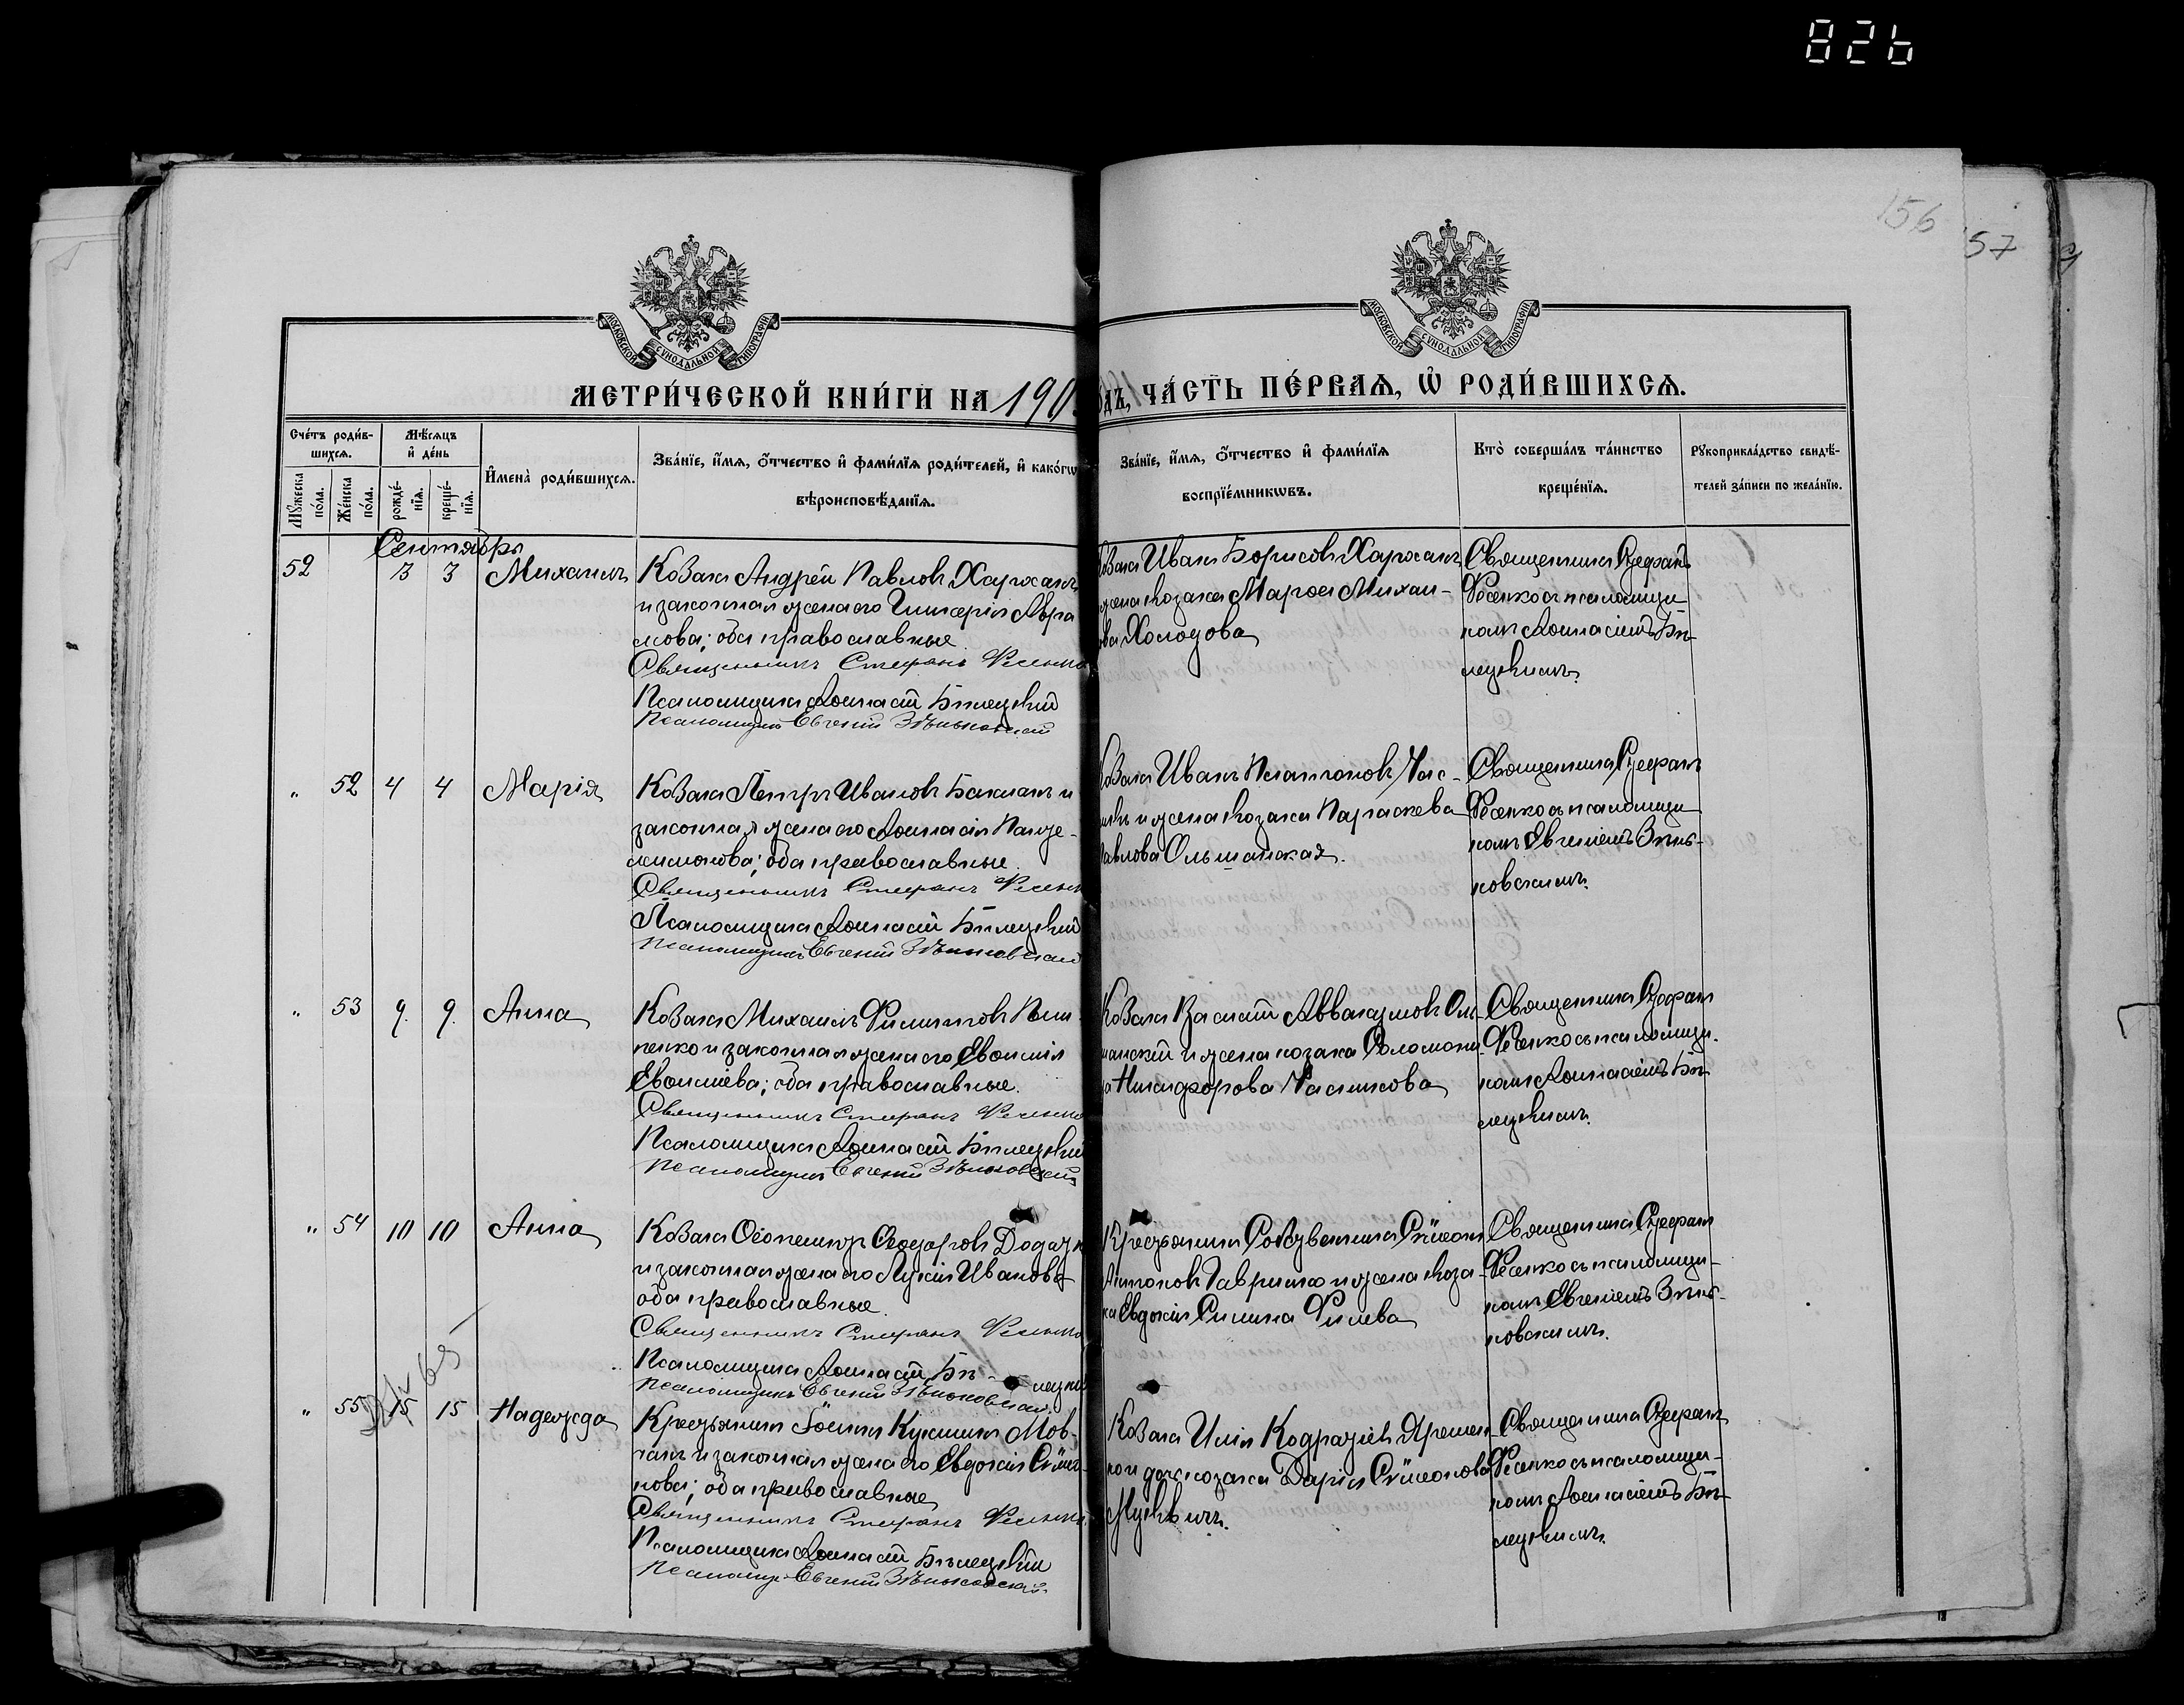 826
156
57
МОСКОВСКОЙ СѴНОДАЛЬНОЙ ТИПОГРАФІИ
МОСКОВСКОЙ СѴНОДАЛЬНОЙ ТИПОГРАФІИ
МЕТРИ́ЧЕСКОЙ КНИ́ГИ НА 190
ЧА́СТЬ ПЕ́РВАѦ, Ѡ҆ РОДИ́ВШИХСѦ.
Сче́тъ роди́в-
шихсѧ.
Мꙋ́жеска по́ла.
Же́нска по́ла.
Мѣ́сѧцъ и҆ де́нь
рожде́-нїѧ.
креще́-нїѧ.
И҆мена̀ роди́вшихсѧ.
Зва́нїе, и҆́мѧ, ѻ҆́тчество и҆ фами́лїѧ роди́телей, и҆ како́гѡ
вѣроисповѣ́данїѧ.
Зва́нїе, и҆́мѧ, ѻ҆́тчество и҆ фами́лїѧ
воспрїе́мникѡвъ.
Кто̀ соверша́лъ та́инство
креще́нїѧ.
Рꙋкоприкла́дство свидѣ́-
телей за́писи по жела́нїю.
Сентябрь
52 3 3 Михаилъ
Козакъ Андрей Павловъ Харханъ
и законная жена его Гликерія Авра
мова; оба православные
Священникъ Стефанъ Фесенко
Псаломщикъ Аѳанасій Билецкій
Псаломщикъ Евгеній Зѣньковскій
Козакъ Иванъ Борисовъ Харханъ
жена козака Марѳа Михаи-
Холодова
Священникъ Стефанъ
Фесенко съ псаломщи-
комъ Аѳанасіемъ Би-
лецкимъ.
" 52 4 4 Марія
Козакъ Петръ Ивановъ Бакланъ и
законная жена его Аѳанасія Панте-
лимонова; оба православные.
Священникъ Стефанъ Фесенк
Псаломщикъ Аѳанасій Билецкій
Псаломщикъ Евгеній Зѣньковскій
Козакъ Иванъ Платоновъ Час-
и жена козака Параскева
Павлова Ольшанская.
Священникъ Стефанъ
Фесенко съ псаломщи-
комъ Евгеніемъ Зѣнь-
ковскимъ.
" 53 9. 9. Анна
Козакъ Михаилъ Филиповъ
и законная жена его Евѳимія
Евѳиміева; оба православные.
Священникъ Стефанъ Фесенко
Псаломщикъ Аѳанасій Билецкій
Псаломщикъ Евгеній Зѣньковскій
Козакъ Василій Аввакумовъ Оль-
шанскій и жена козака Соломони-
Никифорова Часникова
Священникъ Стефанъ
Фесенко съ псаломщи-
комъ Аѳанасіемъ Би-
лецкимъ.
" 54 10 10 Анна
Козакъ Ѳеодоровъ
и законная жена его Лукія Иванова
оба православные.
Священникъ Стефанъ Фесенко
Псаломщикъ Аѳанасій Би-лецкі
Псаломщикъ Евгеній Зѣньковскій
Крестьянинъ Сѵмеонъ
Антоновъ и жена коза-
ка Евдокія
Священникъ Стефанъ
Фесенко съ псаломщи-
комъ Евгеніемъ Зѣнь-
ковскимъ.
" 55 15 15 Надежда
Крестьянинъ Іоаннъ Мов-
чанъ и законная жена его Евдокія Сѵмео-
нова; оба православные
Священникъ Стефанъ Фесенко
Псаломщикъ Аѳанасій Билецкій
Псаломщ Евгеній Зѣньковскій
Козакъ Илія Кодратіевъ Яремен-
ко и дочь козака Дарія Сѵмеонова
Священникъ Стефанъ
Фесенко съ псаломщи-
комъ Аѳанасіемъ Би-
лецкимъ.